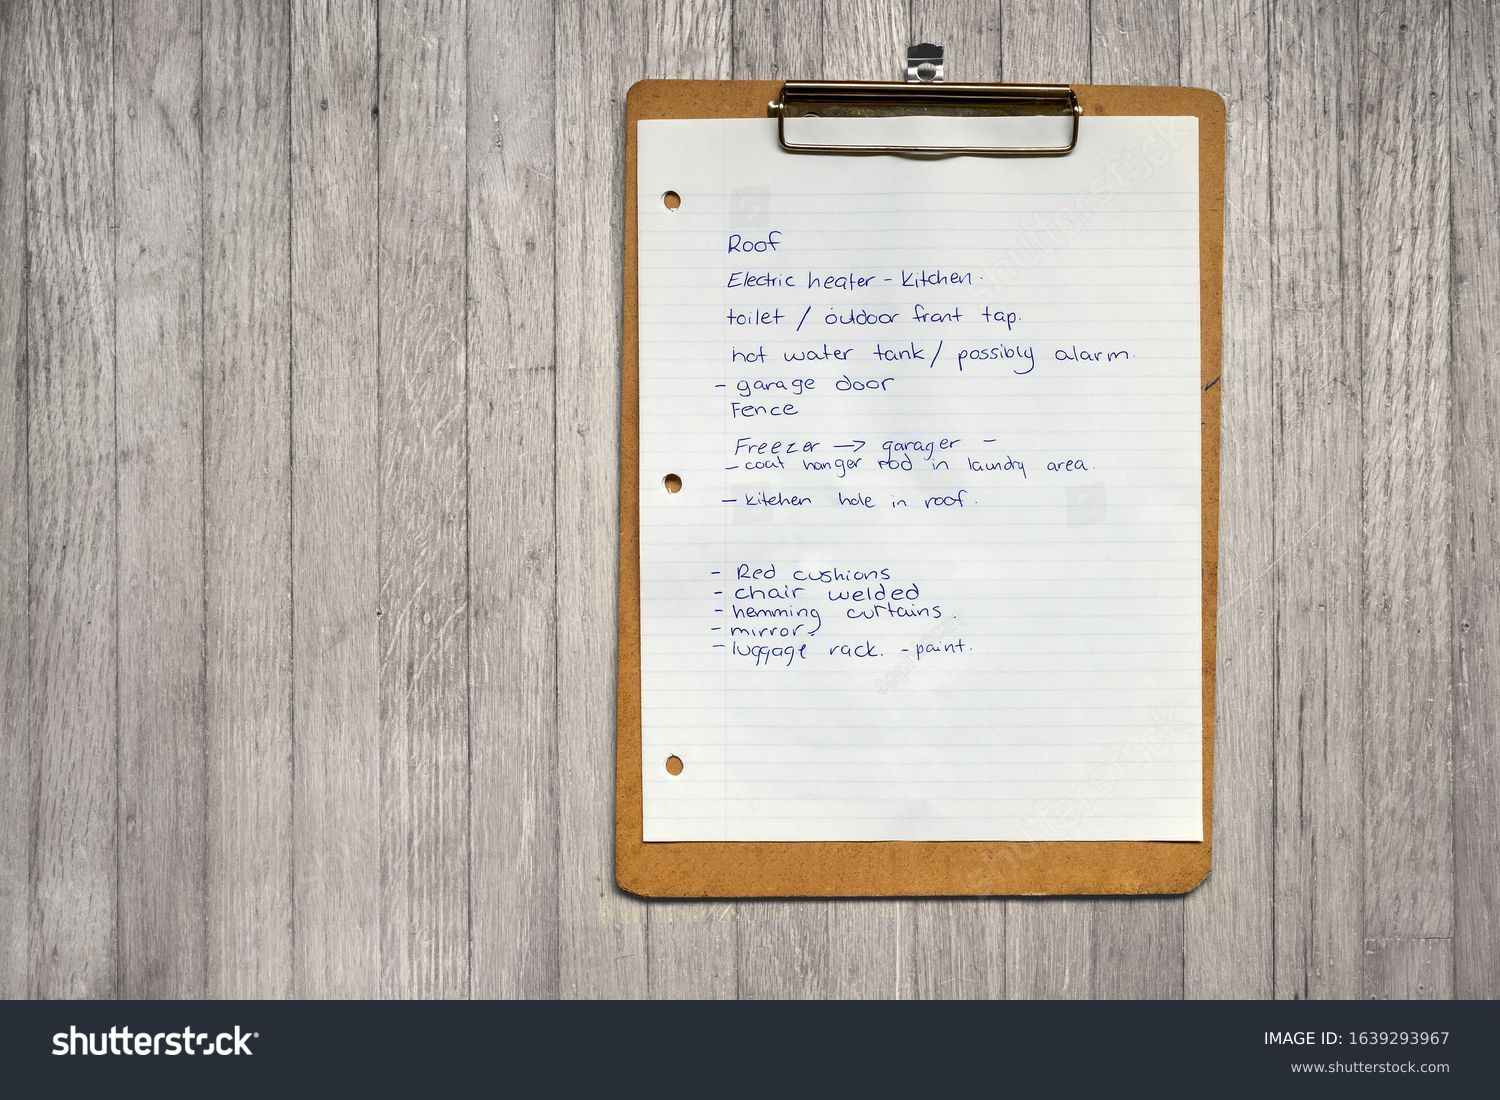 Roof
Electric heater - Kitchen.
toilet / outdoor front tap.
hot water tank / possibly alarm.
- garage door
Fence
Freezer → garager -
- coat hanger rod in laundry area.
- kitchen hole in roof.
- Red cushions
- chair welded
- hemming curtains.
- mirror
- luggage rack. - paint.
shutterstock
IMAGE ID: 1639293967
www.shutterstock.com